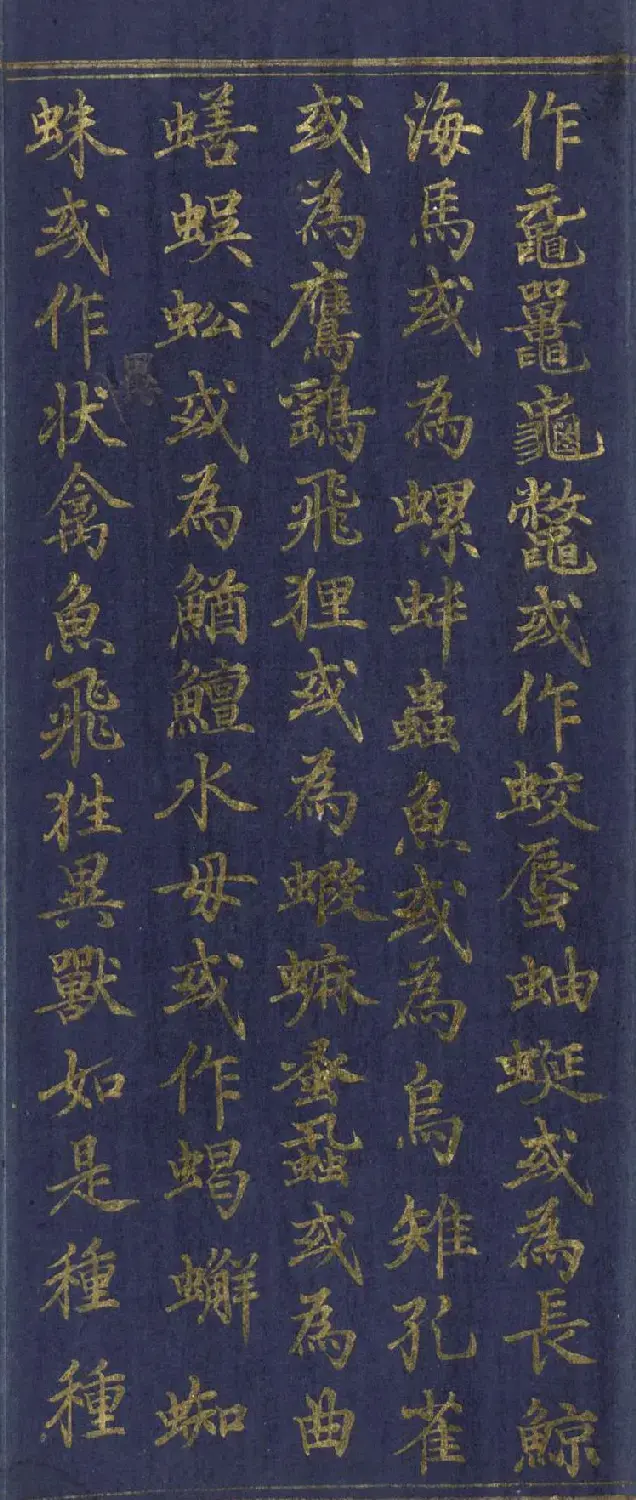 作黿鼉龜鱉或作蛟蜃蚰蜒或為長鯨
海馬或為螺蚌蟲魚或為烏雉孔雀
或為鷹鷂飛狸或為蝦蟆蚤蝨或為曲
蟮蜈蚣或為鰌鱣水母或作蝎蠏蜘
蛛或作状禽魚飛狌異獸如是種種